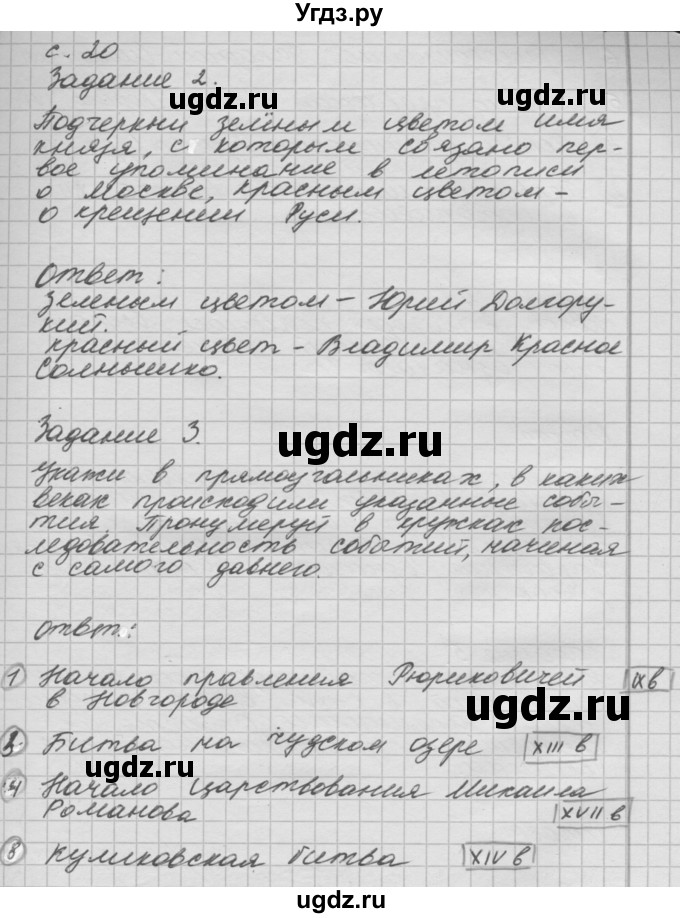 Угдз.ру
с. 20
Задание 2.
ugdz.ru ugdz.ru
Подчеркни зелёным цветом имя
князя, с которым связано пер-
вое упоминание в летописи
о Москве, красным цветом –
о крещении Руси.
ugdz.ru
Ответ:
зеленым цветом – Юрий Долгору-
кий.
красный цвет – Владимир Красное
Солнышко.
ugdz.ru ugdz.ru
Задание 3.
ugdz.ru
Укажи в прямоугольниках, в каких
веках происходили указанные собы-
тия. Пронумеруй в кружках пос-
ледовательность событий, начиная
с самого давнего.
ugdz.ru ugdz.ru
Ответ:
1 Начало правления Рюриковичей IX в
в Новгороде
ugdz.ru
Битва на Чудском озере XIII в
ugdz.ru
4 Начало царствования Михаила
Романова XVII в
8 Куликовская битва XIV в
ugdz.ru